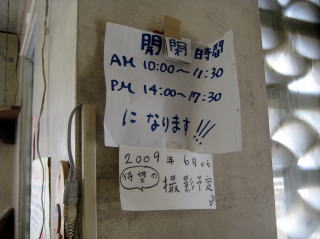 開閉時間
AM 10:00〜11:30
PM 14:00〜17:30
になります!!!
2009年 6月から
待望の 撮影予定